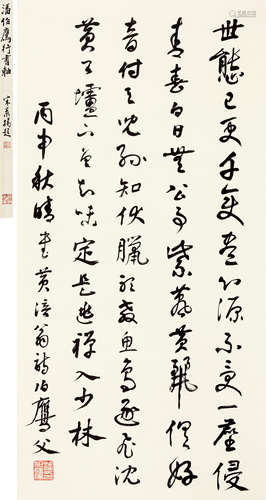 世態已更千變盡心源不受一塵侵
青春白日無公事紫燕黃鸝俱好
音付與兒孫知伏臘聽教魚鳥逐飛沈
黃公壚下曾知味定是逃禪入少林
丙申秋晴書黃涪翁詩伯鷹父
潘伯鷹行書軸